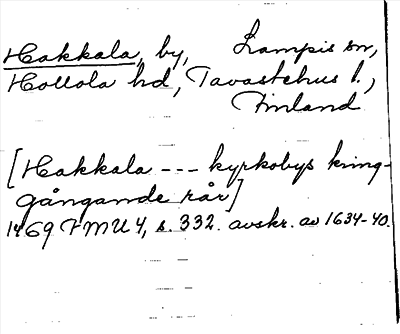 Hakkala, by, Lampis sn,
Hollola hd, Tavastehus l.,
Finland
[Hakkala --- kyrkobys kring-
gångande rår]
1469 FMU 4, s. 332. avskr. av 1634-40.